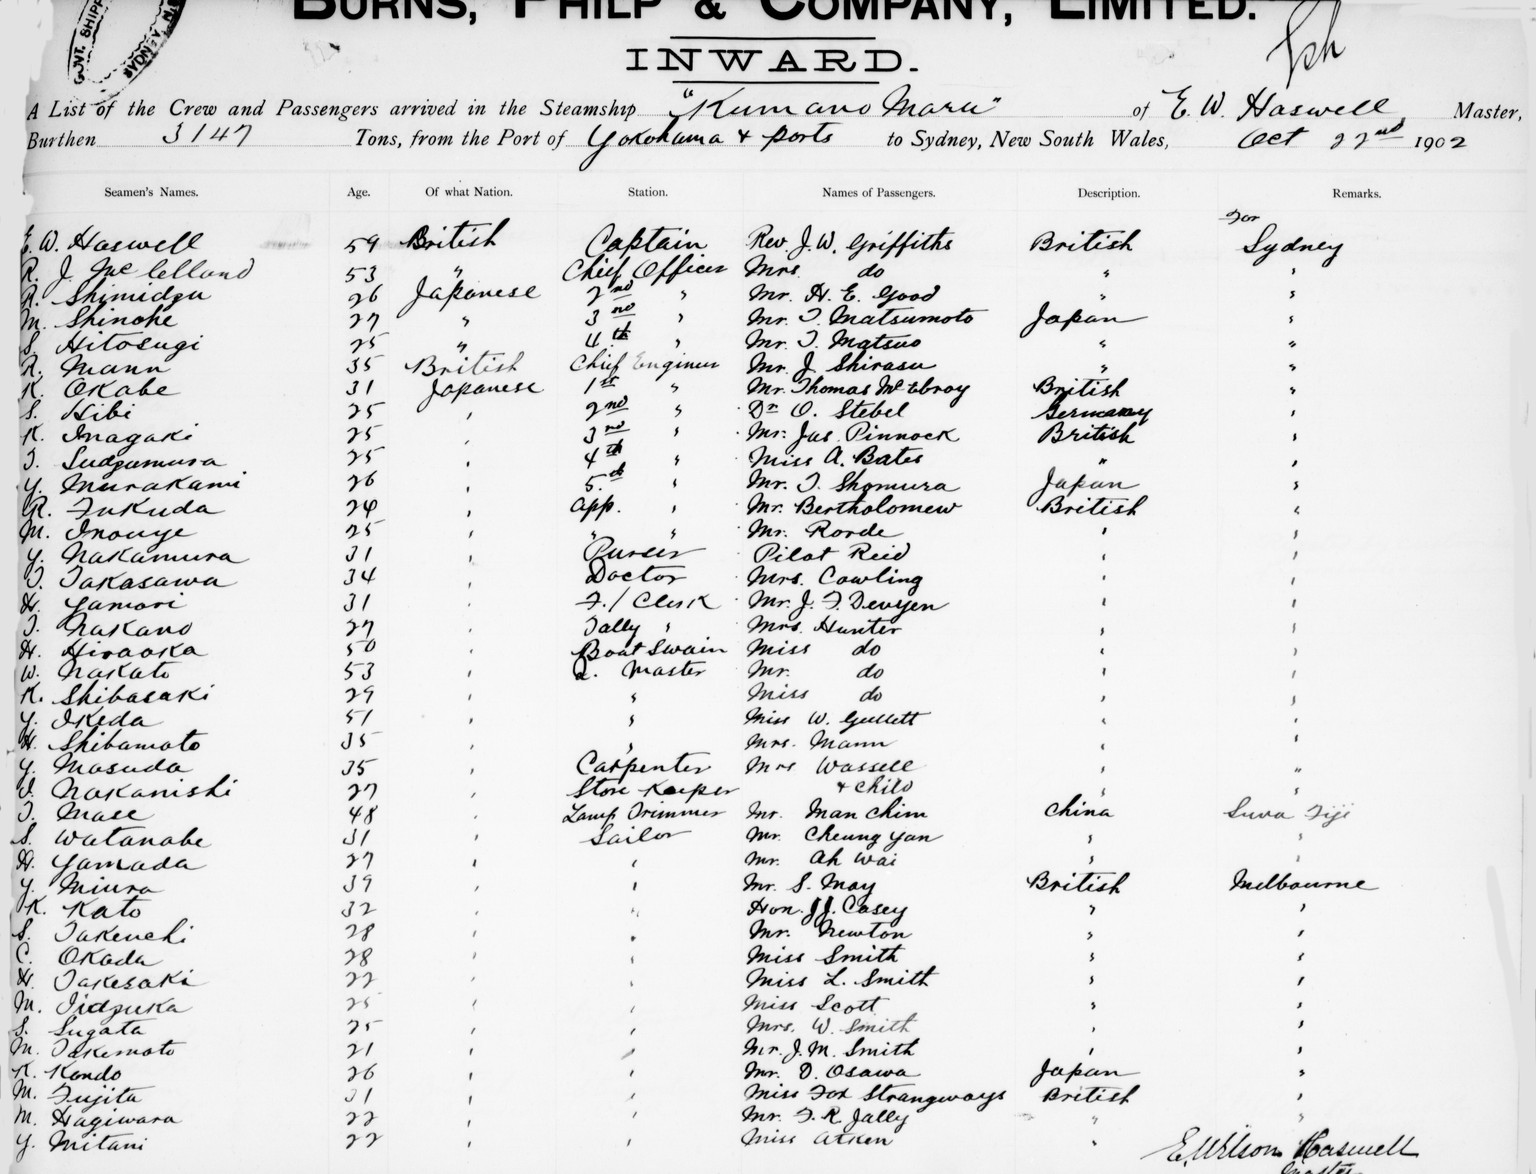 BURNS, PHILP & COMPANY, LIMITED.
GOVT. SHIPP
SYDNEY
INWARD.
A List of the Crew and Passengers arrived in the Steamship "Kumano Maru" of E. W. Haswell Master,
Burthen 3147 Tons, from the Port of Yokohama & ports to Sydney, New South Wales, Oct 22nd 1902
Seamen's Names. Age. Of what Nation. Station. Names of Passengers. Description. Remarks.
For
E. W. Haswell 59 British Captain Rev. J. W. Griffiths British Sydney
R. J. McClelland 53 " Chief Officer Mrs. do " "
R. Shimidzu 26 Japanese 2nd " Mr. H. E. Good " "
M. Shinohe 27 " 3rd " Mr. T. Matsumoto Japan "
S. Hitosugi 25 " 4th " Mr. T. Matsuo " "
R. Mann 35 British Chief Engineer Mr. J. Shirasu " "
K. Okabe 31 Japanese 1st " Mr. Thomas British "
S. Hibi 25 " 2nd " Dr. O. Stebel Germany "
K. Inagaki 25 " 3rd " Mr. Jas. Pinnock British "
T. Sudzumura 25 " 4th " Miss A. Bates " "
Y. Murakami 26 " 5th " Mr. T. Shomura Japan "
R. Fukuda 24 " App. " Mr. Bertholomew British "
M. Inouye 25 " " " Mr. Rorde " "
Y. Nakamura 31 " Purser Pilot Reid " "
T. Takasawa 34 " Doctor Mrs. Cowling " "
H. Yamori 31 " F./ Clerk Mr. J. F. Devyen " "
T. Nakano 27 " Tally " Mrs. Hunter " "
H. Hiraoka 50 " Boat Swain Miss do " "
W. Nakato 53 " Q. Master Mr. do " "
K. Shibasaki 29 " " Miss do " "
Y. Ikeda 51 " " Miss W. Gullett " "
H. Shibamoto 35 " " Mrs. Mann " "
Y. Masuda 35 " Carpenter Mrs Wassell " "
I. Nakanishi 27 " Store Keeper & Child " "
T. Mase 48 " Lamp Trimmer Mr. Man Chim China Suva Fiji
S. Watanabe 31 " Sailor Mr. Cheung Yan " "
H. Yamada 27 " " Mr. Ah Wai " "
Y. Miura 39 " " Mr. S. May British Melbourne
K. Kato 32 " " Hon. J. J. Casey " "
S. Takeuchi 28 " " Mr. Newton " "
C. Okada 28 " " Miss Smith " "
H. Takesaki 22 " " Miss L. Smith " "
M. Iidzuka 25 " " Miss Scott " "
S. Sugata 25 " " Mrs. W. Smith " "
M. Takemoto 21 " " Mr. J. M. Smith " "
K. Kondo 26 " " Mr. D. Osawa Japan "
M. Fujita 31 " " Miss Fox Strangways British "
M. Hagiwara 22 " " Mr. F. R. Jally " "
Y. Mitani 22 " " Miss Atken "
E. Wilson Haswell
Master